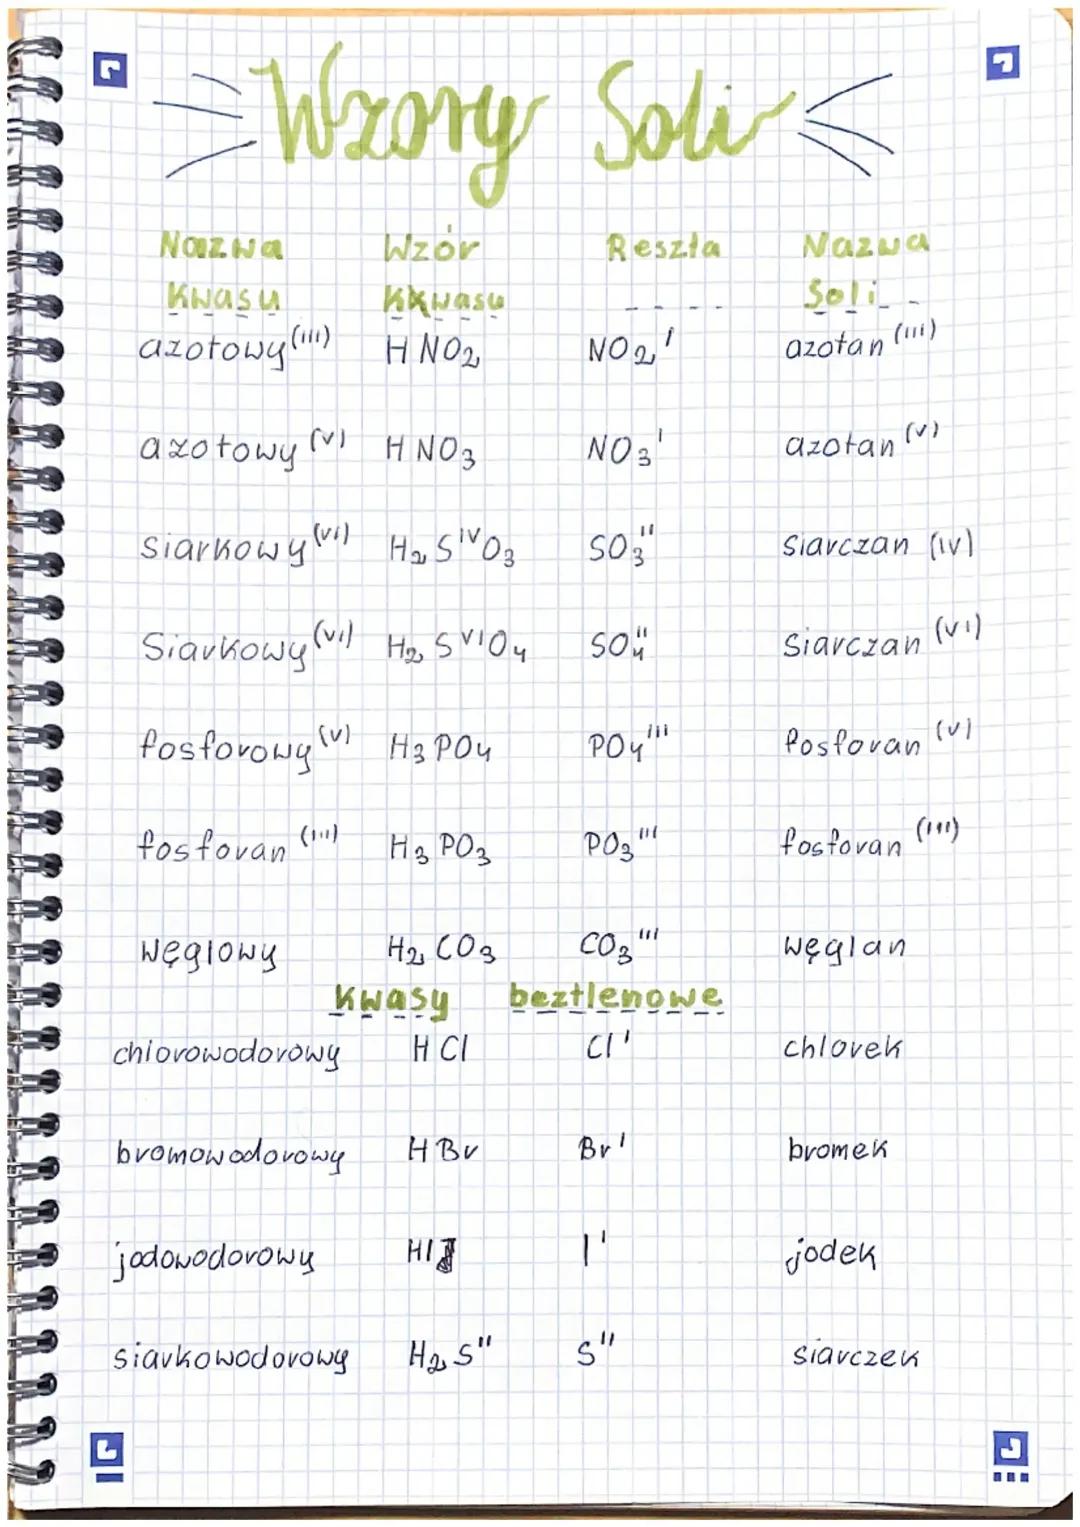 Wzory Soli
Nazwa Wzór Reszta Nazwa
Kwasu Kkwasu Soli
azotowy (III) HNO₂ NO₂' azotan (III)
azotowy (V) HNO₃ NO₃' azotan (V)
siarkowy (VI) H₂SᴵⱽO₃ SO₃'' siarczan (IV)
Siarkowy (VI) H₂SⱽᴵO₄ SO₄'' siarczan (VI)
fosforowy (V) H₃PO₄ PO₄''' fosforan (V)
fosforan (III) H₃PO₃ PO₃''' fosforan (III)
węglowy H₂CO₃ CO₃''' węglan
Kwasy beztlenowe
chlorowodorowy HCl Cl' chlorek
bromowodorowy HBr Br' bromek
jodowodorowy HI I' jodek
siarkowodorowy H₂S'' S'' siarczek